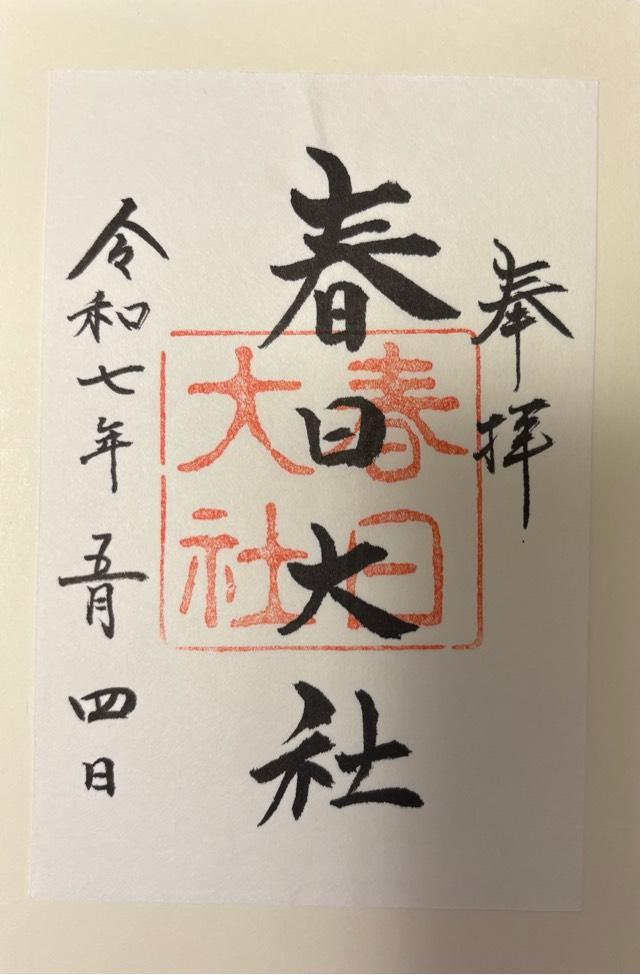 奉拝
春日大社
春日
大社
令和七年五月四日